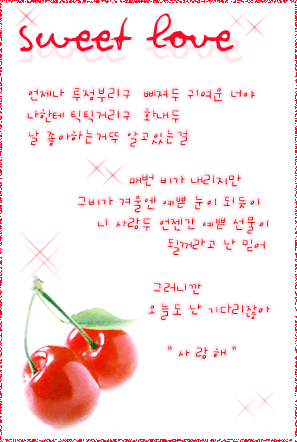 sweet love
언제나 투정부리구 삐져두 귀여운 너야
나한테 틱틱거리구 화내두
날 좋아하는거뚜 알고있는걸
매번 비가 내리지만
그비가 겨울엔 예쁜 눈이 되듯이
니 사랑두 언젠간 예쁜 선물이
될꺼라고 난 믿어
그러니깐
오늘도 난 기다리잖아
" 사 랑 해 "